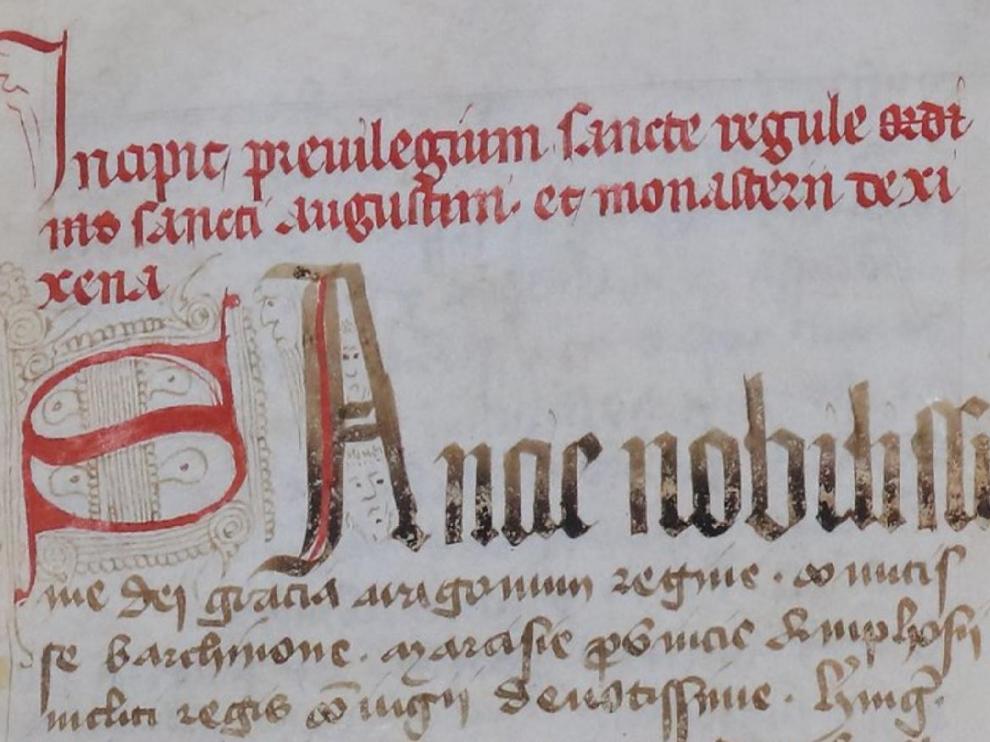 Incipit preuilegium sancte regule ordi
nis sancti augustini · et monasterii de xi
xena
SAnae nobilissi
me dei gracia aragonum regine · comitis
se barchinone · marcisie prouincie Amphosii
incliti regis coniugii deuotissime ·